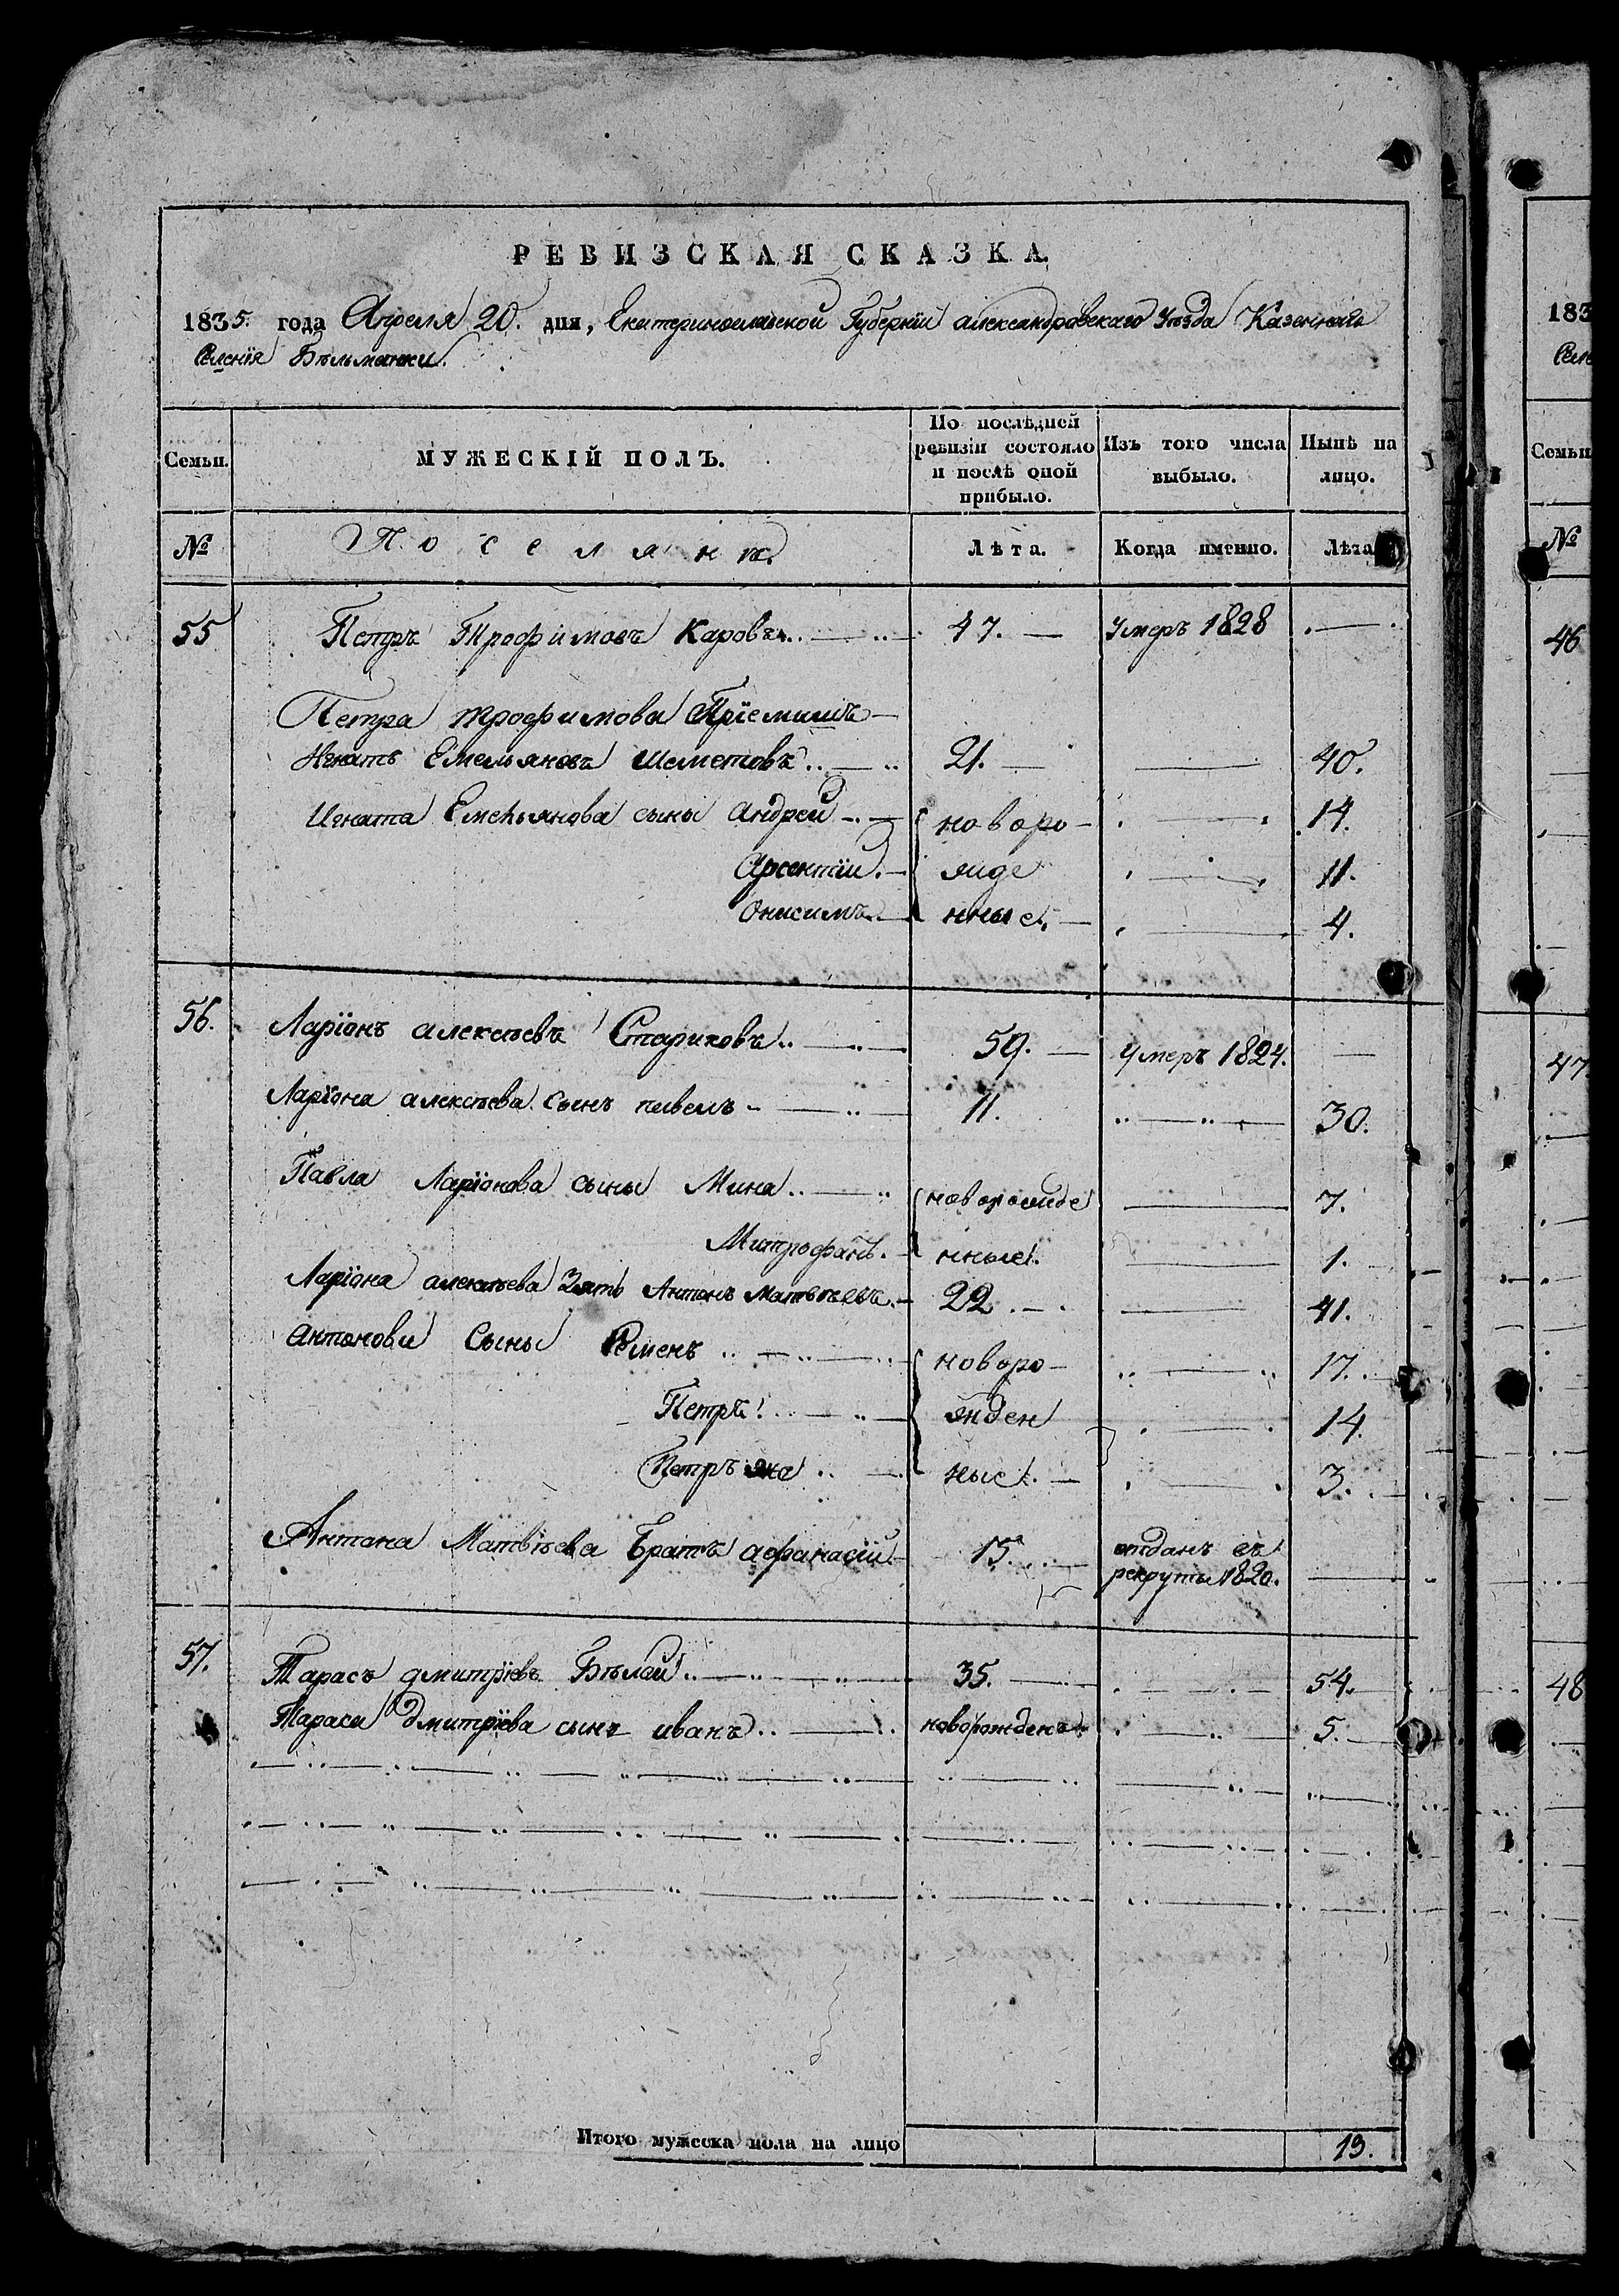 РЕВИЗСКАЯ СКАЗКА.
1835. года Апреля 20. дня, Екатеринославской Губернїи александровскаго Уѣзда Казеннаго
Селенїя Бѣльманки.
Семьи. МУЖЕСКІЙ ПОЛЪ. По послѣдней ревизіи состояло и послѣ оной прибыло. Изъ того числа выбыло. Нынѣ на лицо.
№ Поселянѣ. Лѣта. Когда именно. Лѣта
55 Петръ Трофимовъ Каровъ 47. Умеръ 1828
Петра трофимова Прїемишъ
Игнатъ Емельяновъ Шеметовъ 21. 40.
Игната Емельянова сыны андрей новоро- 14.
Арсентїй жде 11.
Онисимъ нные. 4.
56. Ларїонъ алексѣевъ Стариковъ 59. Умеръ 1824.
Ларїона алексѣева сынъ павелъ 11. 30.
Павла Ларїонова сыны Мина новорожде 7.
Митрофанъ. нные. 1.
Ларїона алексѣева Зять Антонъ матвѣевъ 22. 41.
антонови Сыны новоро- 17.
Петръ жден 14.
Петръ же ные. 3.
Антона Матвѣева Братъ афанасїй 15. отданъ въ рекруты 1820.
57. Тарасъ дмитрїевъ Бѣлай 35. 54.
Тараса Дмитрїева сынъ иванъ новорожденъ 5.
Итого мужеска пола на лицо 13.
183
Селе
Семьи
№
46
47
48